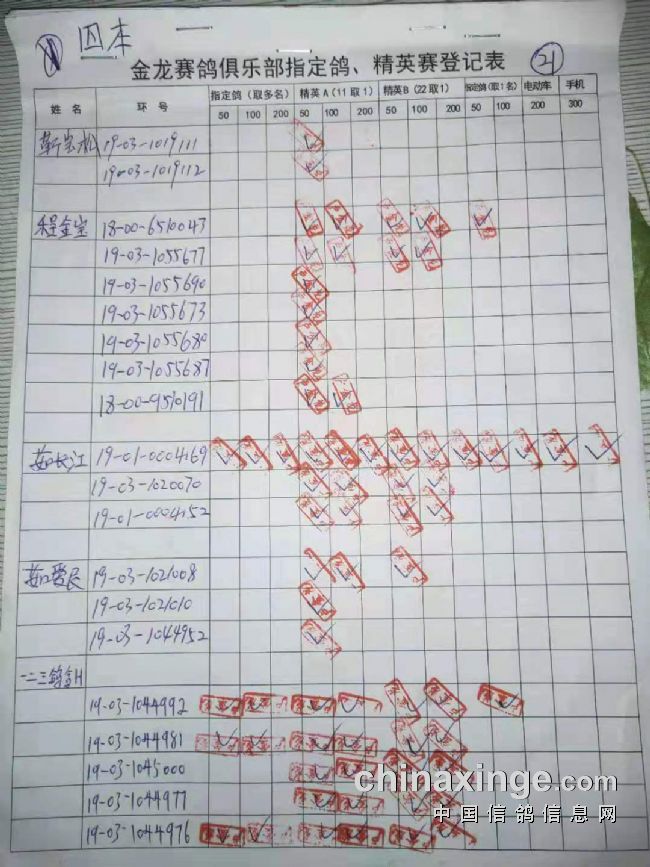 四本
金龙赛鸽俱乐部指定鸽、精英赛登记表
21
姓名 环号 指定鸽（取多名） 精英A（11取1） 精英B（22取1） 指定鸽（取1名） 电动车 手机
50 100 200 50 100 200 50 100 200 50 100 200 300
19-03-1019111
19-03-1019112
程金宝 18-00-6510043
19-03-1055677
19-03-1055690
19-03-1055673
19-03-1055680
19-03-1055687
18-00-9510191
茹长江 19-01-0004169
19-03-1020070
19-01-0004152
茹爱民 19-03-1021008
19-03-1021010
19-03-1044952
一二三鸽舍H
19-03-1044992
19-03-1044981
19-03-1045000
19-03-1044977
19-03-1044976
chinaxinge.com
中国信鸽信息网